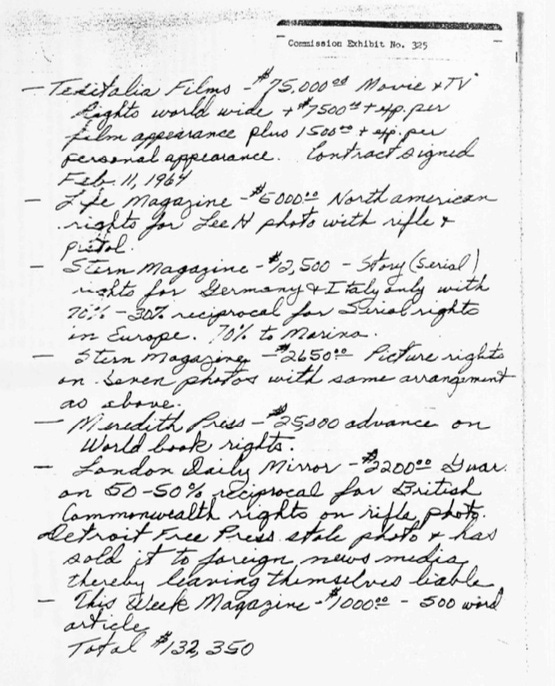 Commission Exhibit No. 325
— Texitalia Films - $75,000.00 Movie & TV
Rights world wide + $7500.00 + exp. per
film appearance plus 1500.00 + exp. per
personal appearance. Contract signed
Feb. 11, 1964
— Life Magazine - $5000.00 North american
rights for Lee H photo with rifle &
pistol.
— Stern Magazine - $12,500 - Story (serial)
rights for Germany & Italy only with
70% - 30% reciprocal for Serial rights
in Europe. 70% to Marina.
— Stern Magazine - $2650.00 Picture rights
on seven photos with same arrangement
as above.
— Meredith Press - $25,000 advance on
World book rights.
— London Daily Mirror - $2200.00 Guar.
on 50-50% reciprocal for British
Commonwealth rights on rifle photo.
Detroit Free Press stole photo & has
sold it to foreign news media
thereby leaving themselves liable
— This Week Magazine - $1000.00 - 500 word
article
Total $132,350